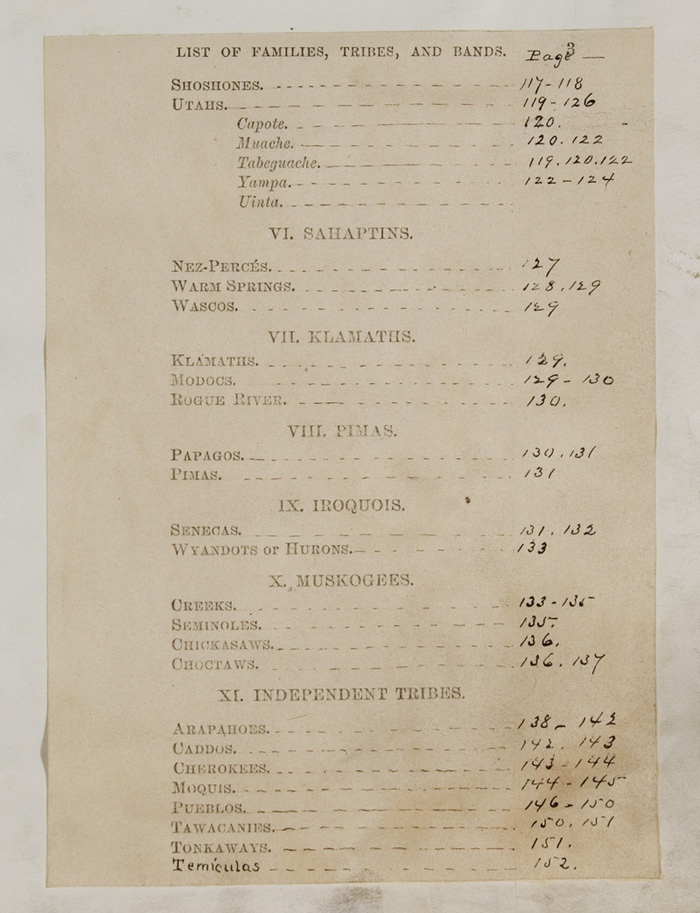 LIST OF FAMILIES, TRIBES, AND BANDS. Page 3
SHOSHONES. 117-118
UTAHS. 119-126
Capote. 120.
Muache. 120.122
Tabeguache. 119.120.122
Yampa. 122-124
Uinta.
VI. SAHAPTINS.
NEZ-PERCÉS. 127
WARM SPRINGS. 128.129
WASCOS. 129
VII. KLAMATHS.
KLAMATHS. 129.
MODOCS. 129-130
ROGUE RIVER. 130.
VIII. PIMAS.
PAPAGOS. 130.131
PIMAS. 131
IX. IROQUOIS.
SENECAS. 131.132
WYANDOTS or HURONS. 133
X. MUSKOGEES.
CREEKS. 133-135
SEMINOLES. 135.
CHICKASAWS. 136.
CHOCTAWS. 136.137
XI. INDEPENDENT TRIBES.
ARAPAHOES. 138-142
CADDOS. 142.143
CHEROKEES. 143-144
MOQUIS. 144-145
PUEBLOS. 146-150
TAWACANIES. 150.151
TONKAWAYS. 151.
Temiculas 152.